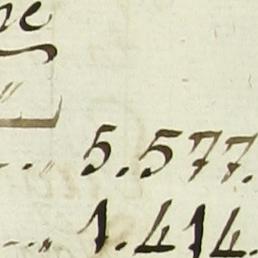 5.577.
1.414.